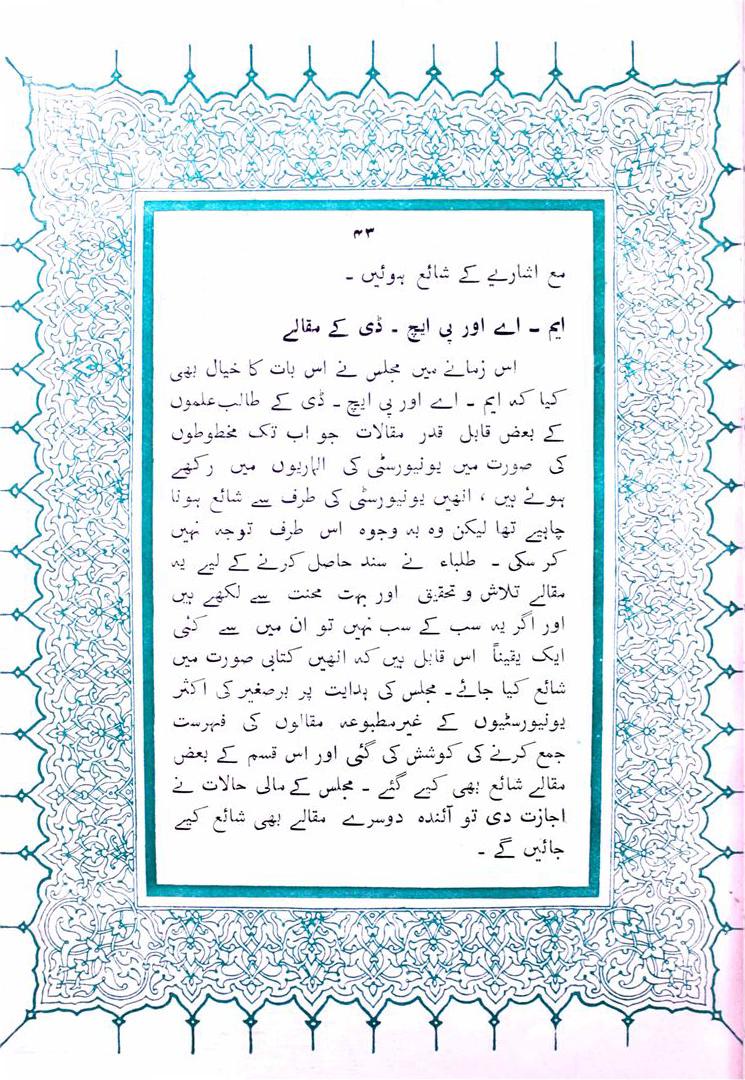 ۴۳
مع اشاریے کے شائع ہوئیں ۔
ایم ۔ اے اور پی ایچ ۔ ڈی کے مقالے
اس زمانے میں مجلس نے اس بات کا خیال بھی
کیا کہ ایم ۔ اے اور پی ایچ ۔ ڈی کے طالب علموں
کے بعض قابل قدر مقالات جو اب تک مخطوطوں
کی صورت میں یونیورسٹی کی الماریوں میں رکھے
ہوئے ہیں ، انھیں یونیورسٹی کی طرف سے شائع ہونا
چاہیے تھا لیکن وہ بہ وجوہ اس طرف توجہ نہیں
کر سکی ۔ طلباء نے سند حاصل کرنے کے لیے یہ
مقالے تلاش و تحقیق اور بہت محنت سے لکھے ہیں
اور اگر یہ سب کے سب نہیں تو ان میں سے کئی
ایک یقیناً اس قابل ہیں کہ انھیں کتابی صورت میں
شائع کیا جائے ۔ مجلس کی ہدایت پر برصغیر کی اکثر
یونیورسٹیوں کے غیر مطبوعہ مقالوں کی فہرست
جمع کرنے کی کوشش کی گئی اور اس قسم کے بعض
مقالے شائع بھی کیے گئے ۔ مجلس کے مالی حالات نے
اجازت دی تو آئندہ دوسرے مقالے بھی شائع کیے
جائیں گے ۔